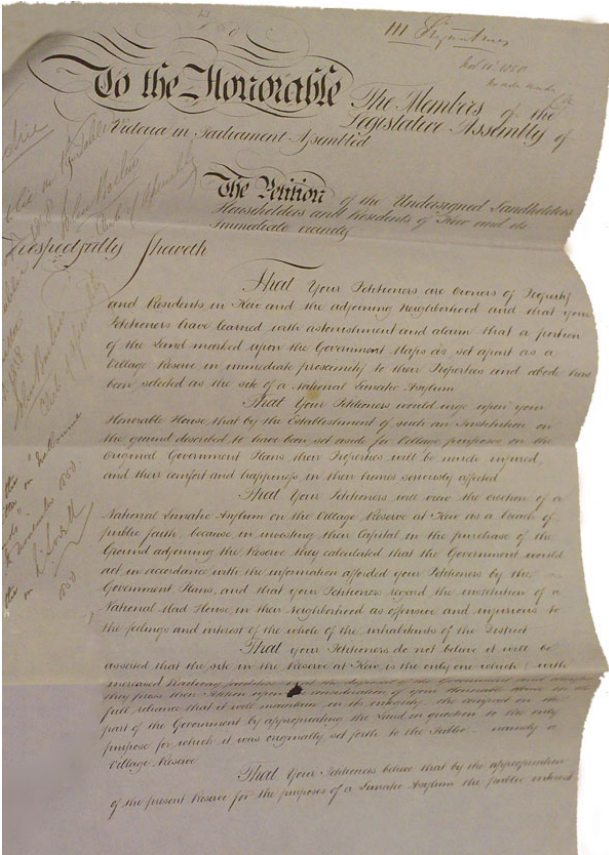 111 Signatures
To the Honorable The Members of the
Legislative Assembly of
Victoria in Parliament Assembled
The Petition of the Undersigned Landholders
Householders and Residents of Kew and its
immediate vicinity
Respectfully Sheweth
That Your Petitioners are Owners of Property
and Residents in Kew and the adjoining Neighborhood and that your
Petitioners have learned with astonishment and alarm that a portion
of the Land marked upon the Government Maps as set apart as a
Village Reserve in immediate proximity to their Properties and abode have
been selected as the site of a National Lunatic Asylum
That Your Petitioners would urge upon your
Honorable House, that by the Establishment of such an Institution on
the ground described to have been set aside for Village purposes on the
Original Government Plans their Properties will be much injured,
and their comfort and happiness in their homes seriously affected
That Your Petitioners will view the erection of a
National Lunatic Asylum on the Village Reserve at Kew as a breach of
public faith, because in investing their Capital in the purchase of the
Ground adjoining the Reserve they calculated that the Government would
act in accordance with the information afforded your Petitioners by the
Government Plans, and that your Petitioners regard the institution of a
National Mad House in their neighborhood as offensive and injurious to
the feelings and interest of the whole of the inhabitants of the District
That your Petitioners do not believe it will be
asserted that the site in the Reserve at Kew, is the only one which with
increased the disposal of the Government and
they press their Petition upon consideration of your Honorable House in the
full reliance that it will maintain in its integrity the on the
part of the Government by appropriating the Land in question to the only
purpose for which it was originally set forth to the Public – namely a
Village Reserve
That Your Petitioners believe that by the appropriation
of the present Reserve for the purposes of a Lunatic Asylum the public interest